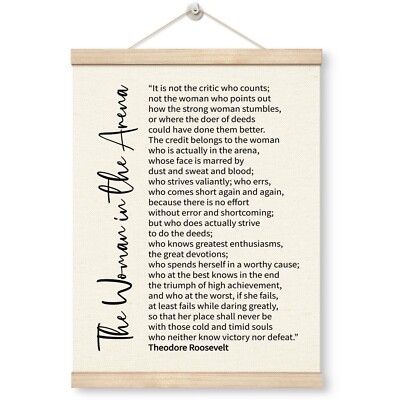 The Woman in the Arena
“It is not the critic who counts;
not the woman who points out
how the strong woman stumbles,
or where the doer of deeds
could have done them better.
The credit belongs to the woman
who is actually in the arena,
whose face is marred by
dust and sweat and blood;
who strives valiantly; who errs,
who comes short again and again,
because there is no effort
without error and shortcoming;
but who does actually strive
to do the deeds;
who knows greatest enthusiasms,
the great devotions;
who spends herself in a worthy cause;
who at the best knows in the end
the triumph of high achievement,
and who at the worst, if she fails,
at least fails while daring greatly,
so that her place shall never be
with those cold and timid souls
who neither know victory nor defeat.”
Theodore Roosevelt